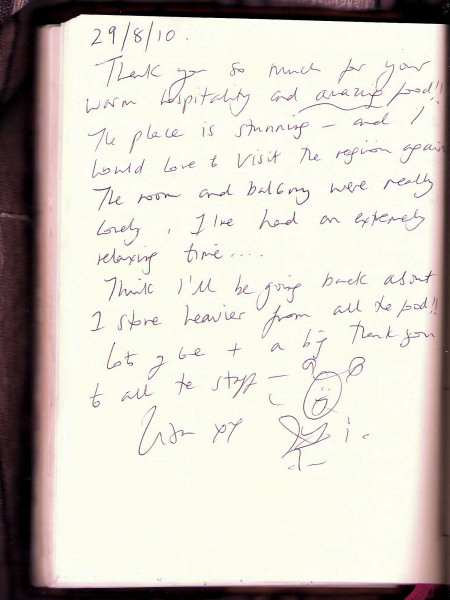 29/8/10.
Thank you so much for your
warm hospitality and amazing food!!
The place is stunning – and I
would love to visit the region again
The room and balcony were really
lovely, I've had an extremely
relaxing time....
Think I'll be going back about
1 stone heavier from all the food!!
Lots of love + a big thank you
to all the staff –
xx